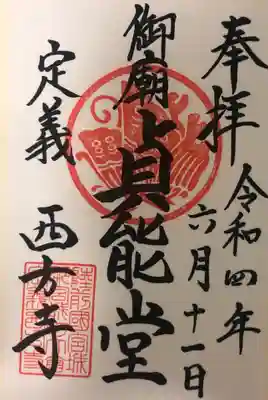 奉拝
令和四年
六月十一日
御廟
貞能堂
定義
西方寺